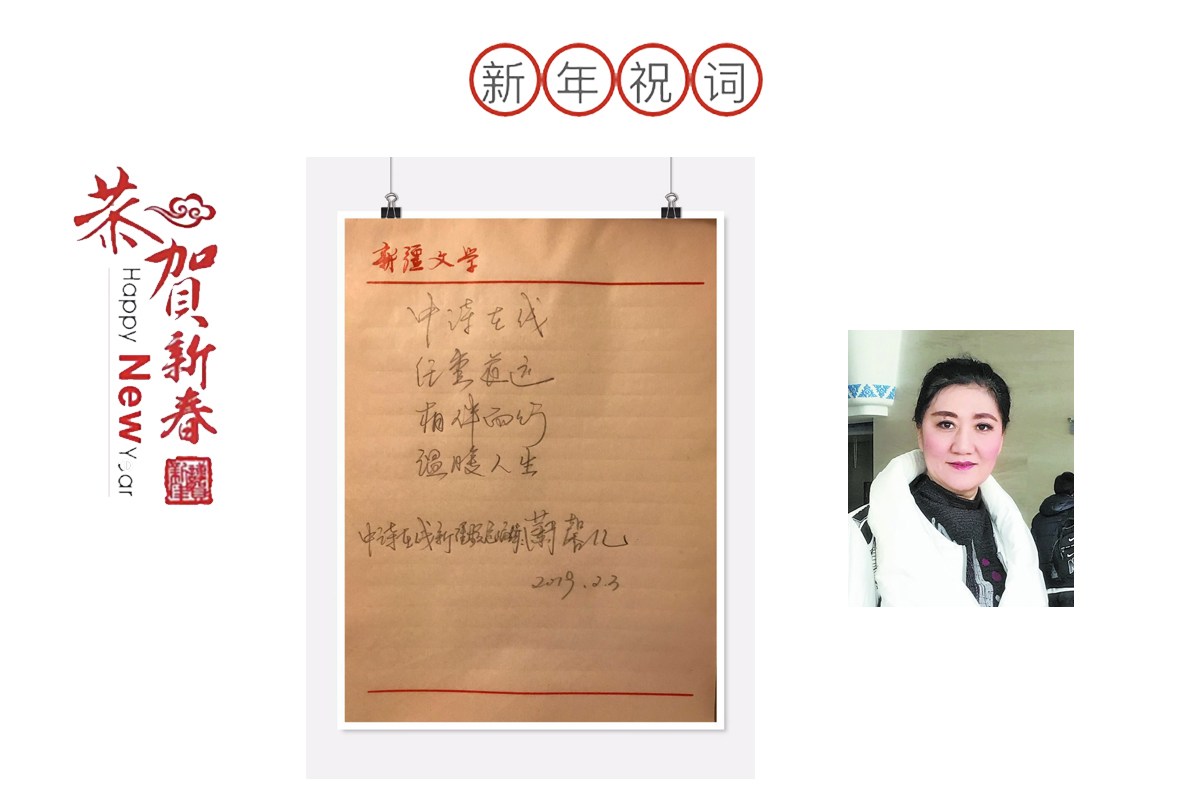 新年祝词
恭贺新春
Happy New Year
新疆文学
中诗在线
任重道远
相伴而行
温暖人生
中诗在线新疆
蔚馨
2019.2.3